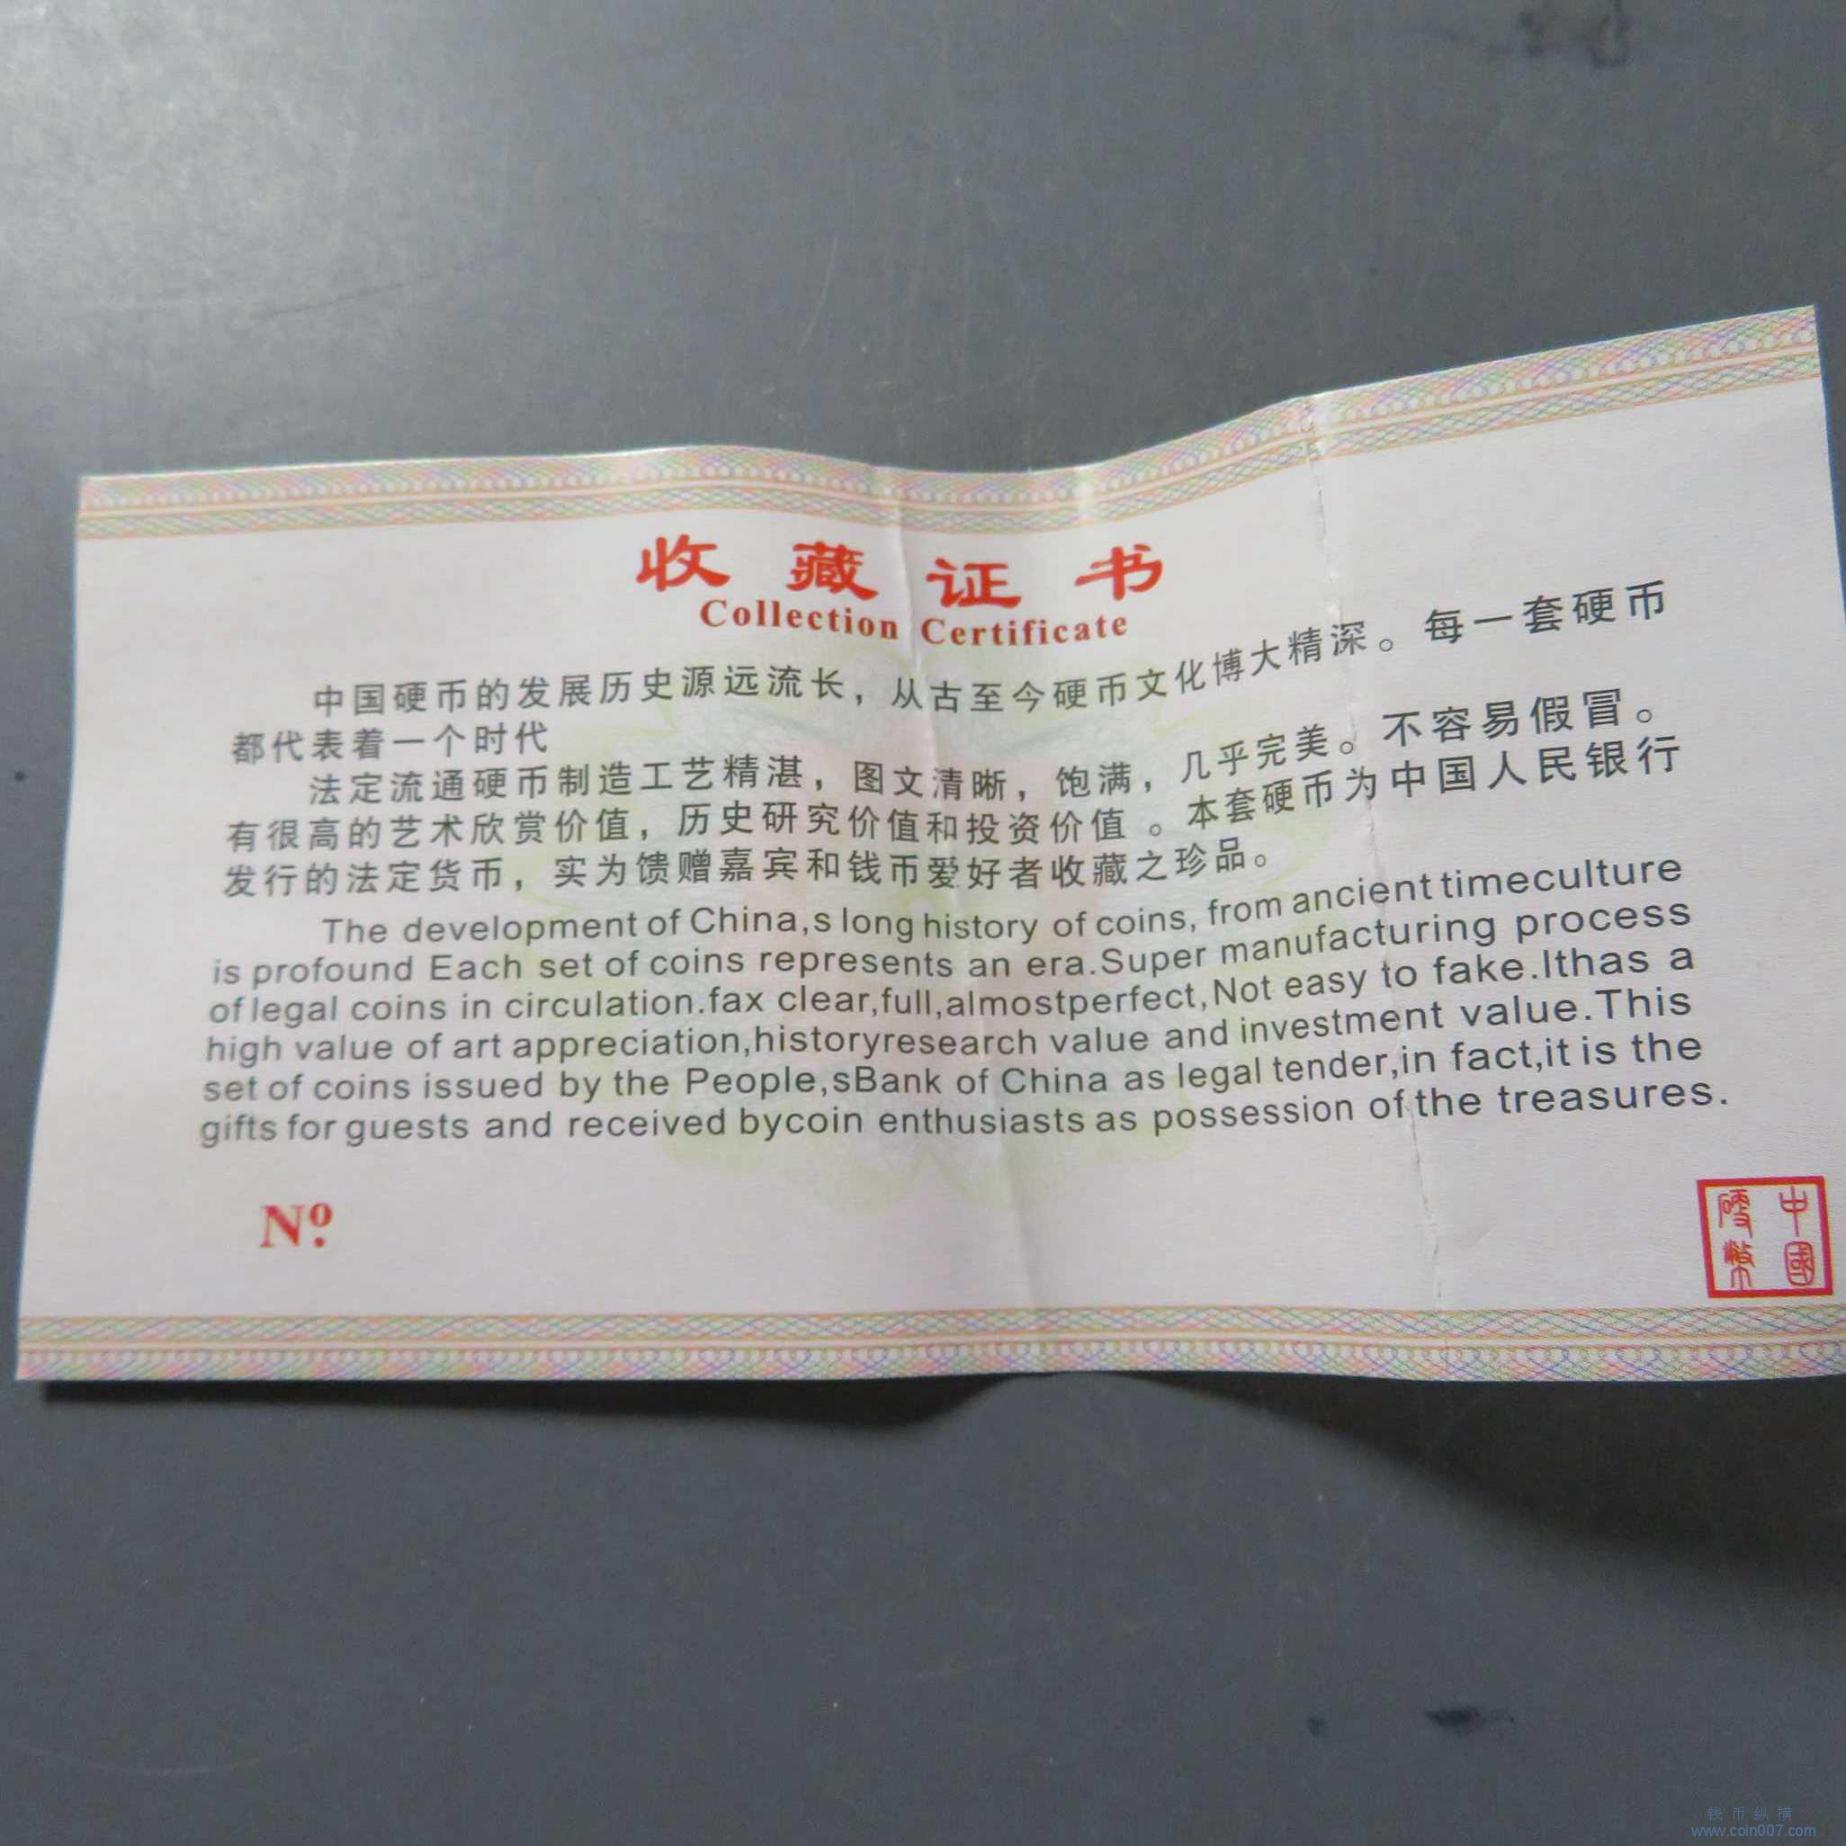 收藏证书
Collection Certificate
中国硬币的发展历史源远流长，从古至今硬币文化博大精深。每一套硬币
都代表着一个时代
法定流通硬币制造工艺精湛，图文清晰，饱满，几乎完美。不容易假冒。
有很高的艺术欣赏价值，历史研究价值和投资价值。本套硬币为中国人民银行
发行的法定货币，实为馈赠嘉宾和钱币爱好者收藏之珍品。
The development of China,s long history of coins, from ancient timeculture
is profound Each set of coins represents an era.Super manufacturing process
of legal coins in circulation.fax clear,full,almostperfect,Not easy to fake.Ithas a
high value of art appreciation,historyresearch value and investment value.This
set of coins issued by the People,sBank of China as legal tender,in fact,it is the
gifts for guests and received bycoin enthusiasts as possession of the treasures.
Nº.
中國
硬幣
钱币纵横
www.coin007.com